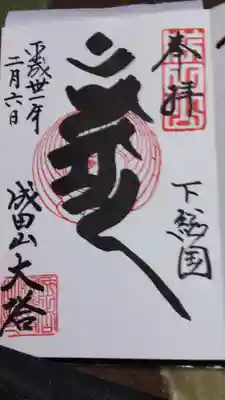 奉拝
下総国
平成丗一年
二月六日
成田山
大塔